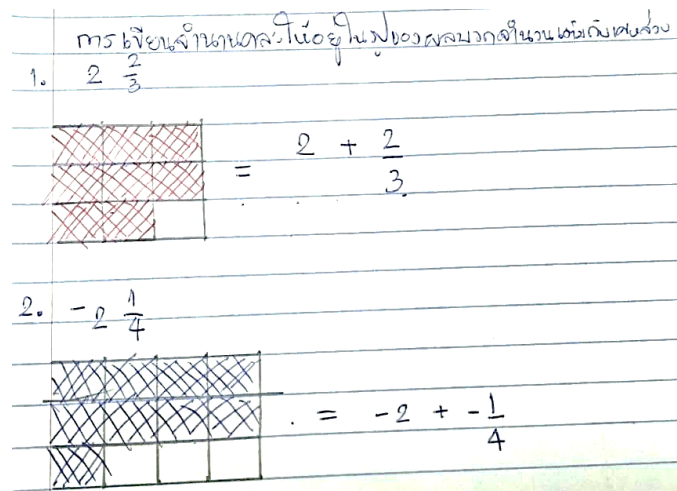 การเขียนจำนวนคละให้อยู่ในรูปของผลบวกจำนวนเต็มกับเศษส่วน
1. 2 2/3
= 2 + 2/3
2. -2 1/4
= -2 + -1/4